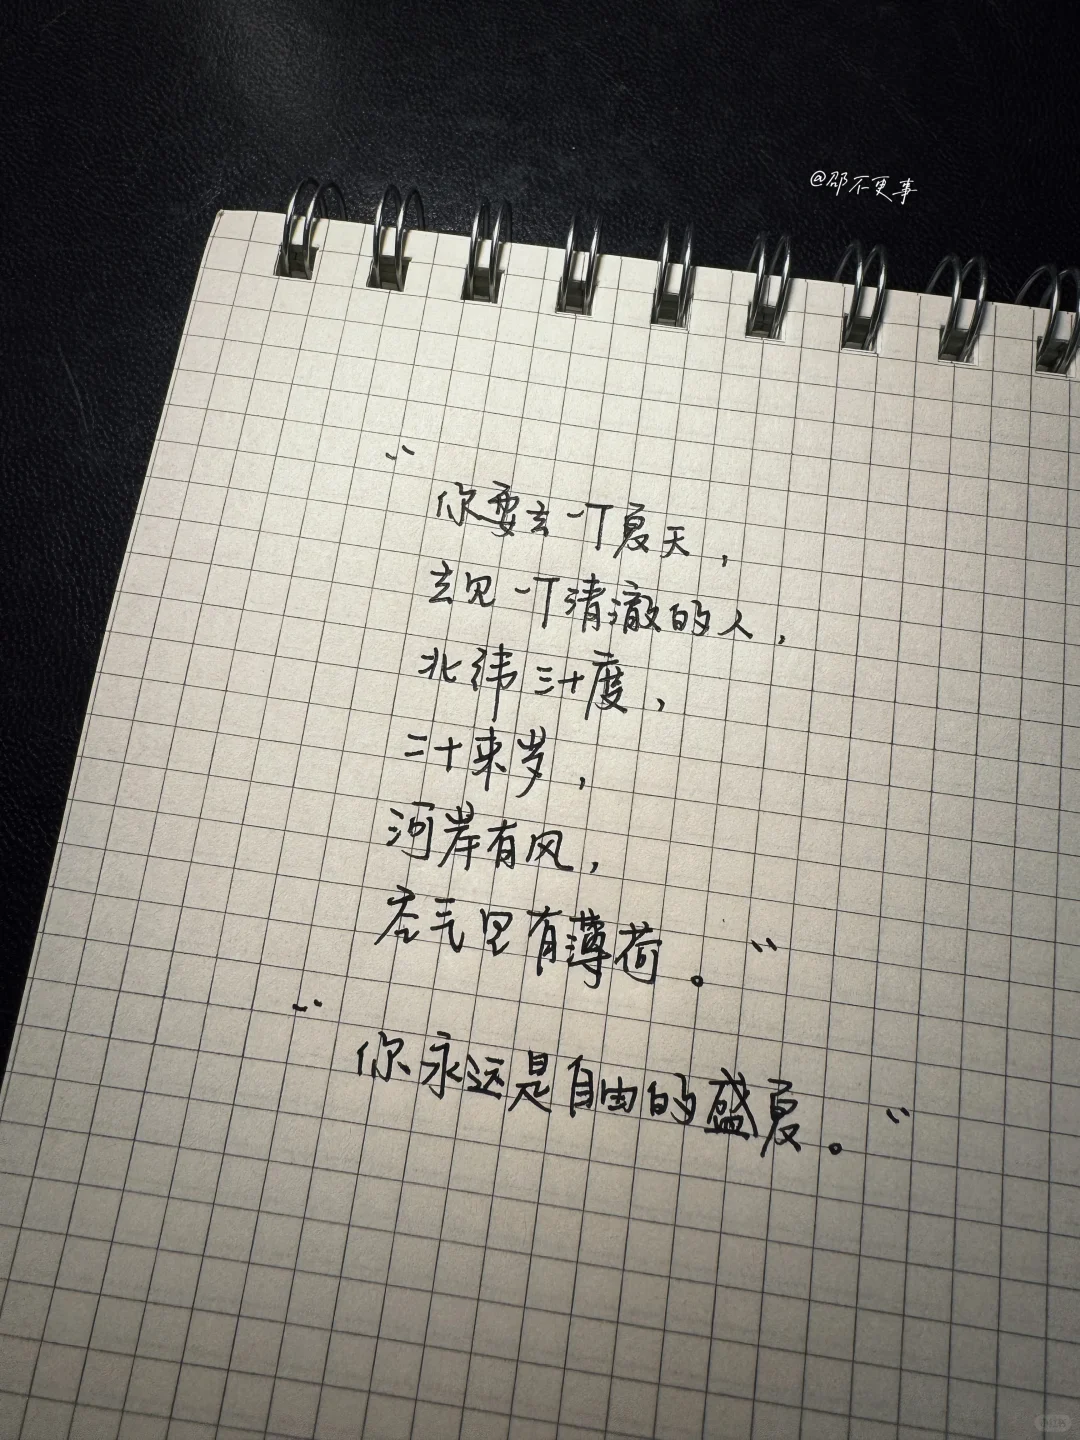 @邵不更事
“你要去一个夏天，
去见一个清澈的人，
北纬三十度，
二十来岁，
河岸有风，
空气里有薄荷。”
“你永远是自由的盛夏。”